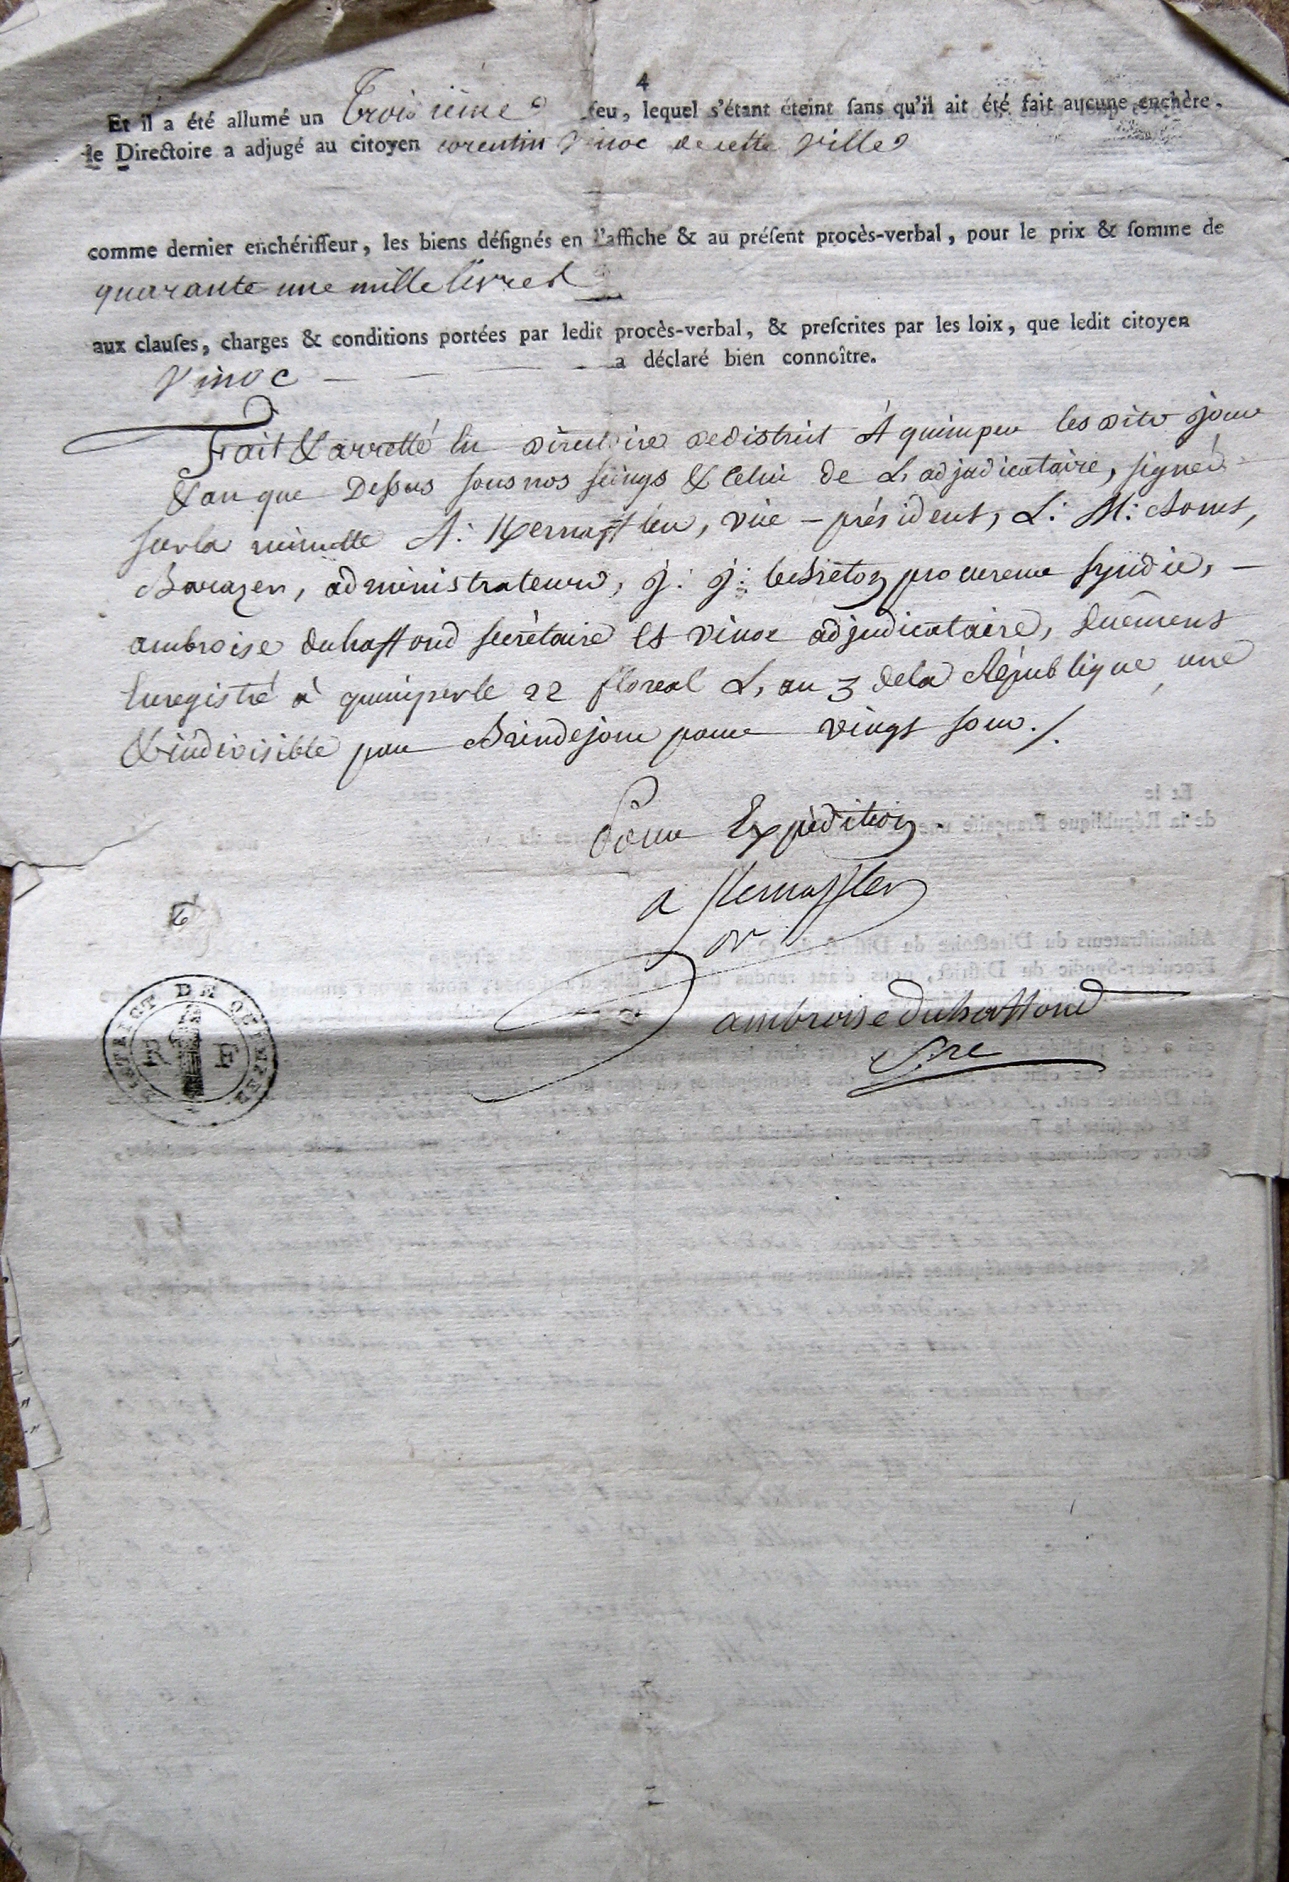 4
Et il a été allumé un Troisième feu, lequel s'étant éteint sans qu'il ait été fait aucune enchère,
le Directoire a adjugé au citoyen corentin Vinoc de cette Ville
comme dernier enchérisseur, les biens désignés en l'affiche & au présent procès-verbal, pour le prix & somme de
quarante une mille livres
aux clauses, charges & conditions portées par ledit procès-verbal, & prescrites par les loix, que ledit citoyen
Vinoc a déclaré bien connoître.
Fait & arretté En Directoire de district A quimper les dits jour
& an que Dessus sous nos seings & Celui de L'adjudicataire, signés
sur la minutte A: Kernafflen, vice-président, L: M:
administrateurs, J: J: leBreton procureur syndic,
ambroise duhaffond secrétaire Et vinoc adjudicataire, duement
Enregistré à quimper le 22 floreal L'an 3 de la République une
& indivisible par Brindejonc pour vingt sous ./.
Pour Expédition
a Kernafflen
ambroise Duhaffond
S.re
DISTRICT DE QUIMPER
R F